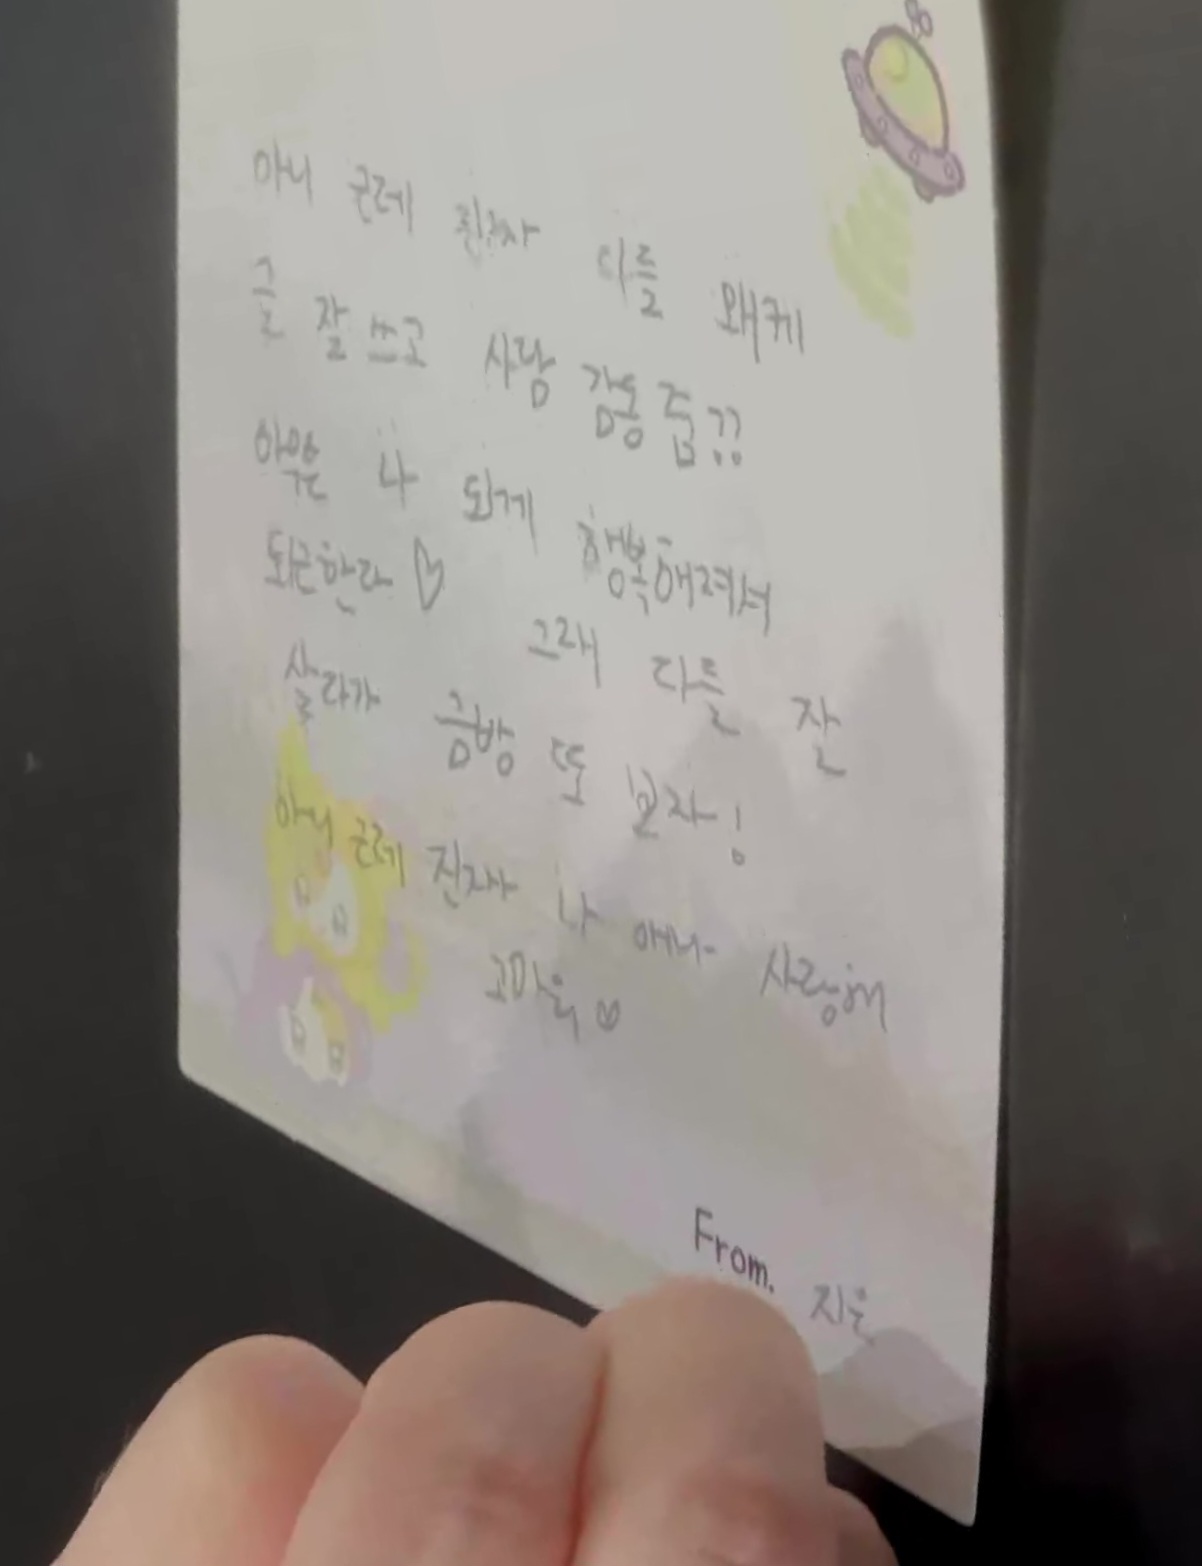 아니 근데 진짜 다들 왜케
글 잘 쓰고 사람 감동 줌??
아움 나 되게 행복해져서
퇴근한다♡ 그래 다들 잘
살다가 금방 또 보자!
아니 근데 진짜 나 애니- 사랑해
고마워♡
From. 지은